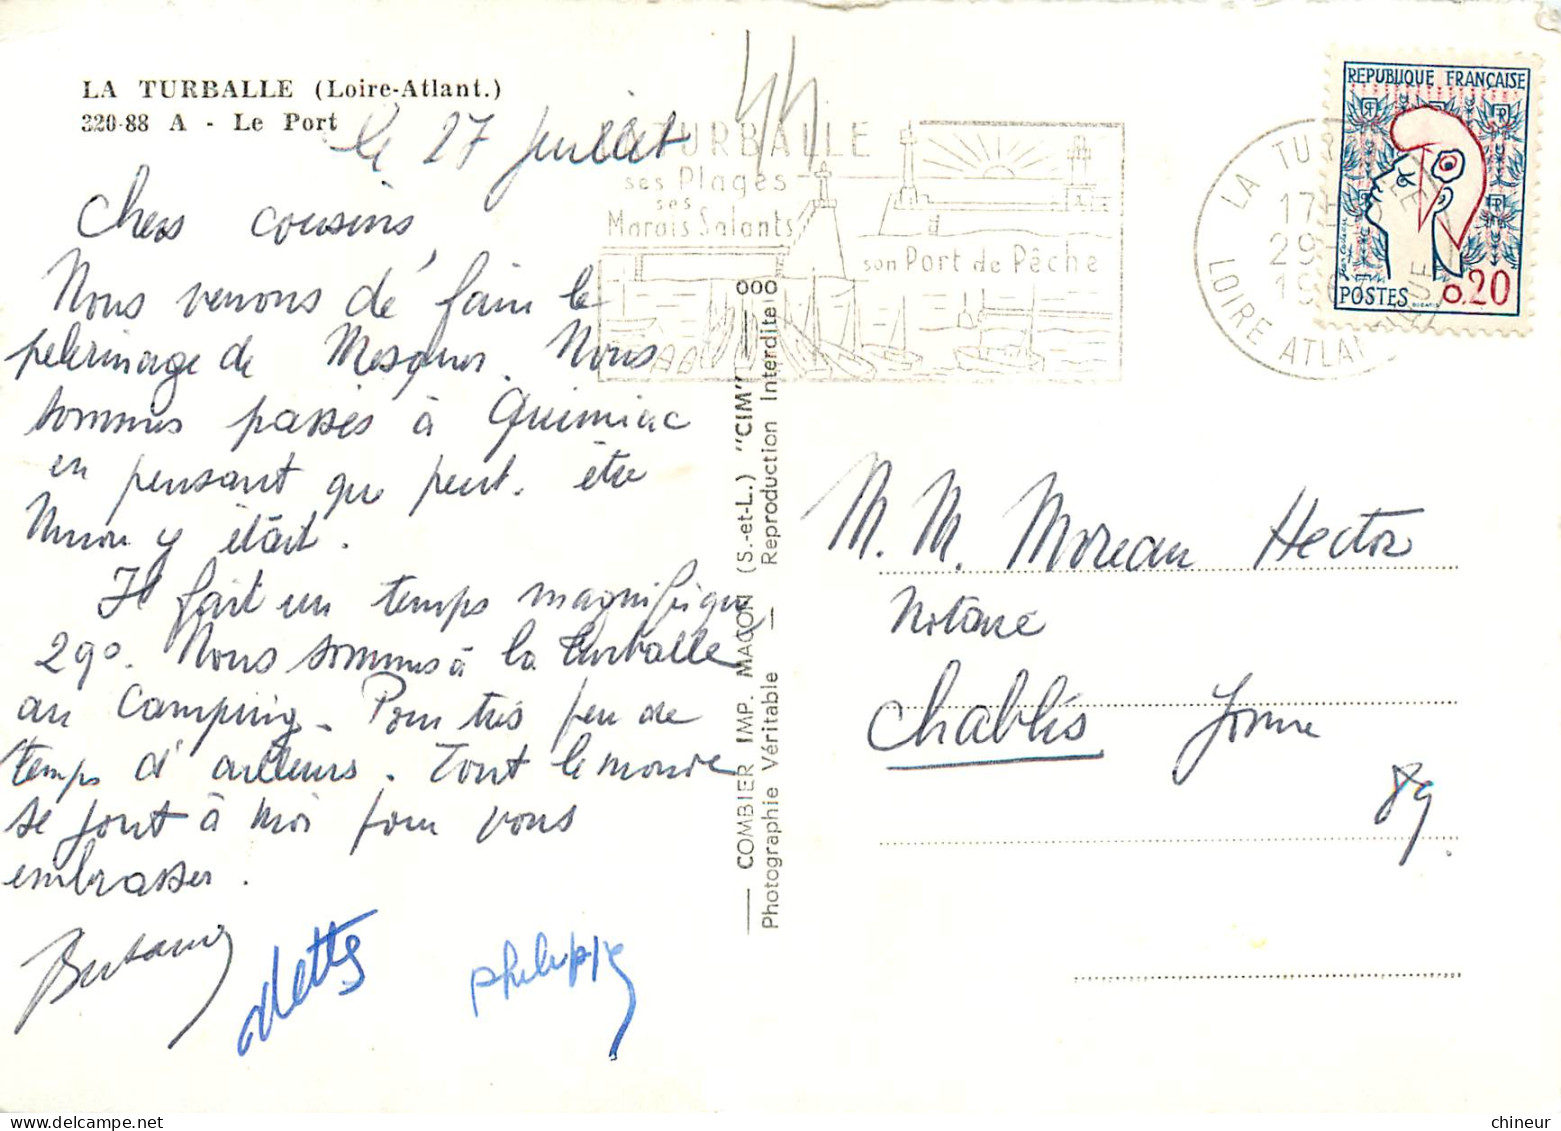 LA TURBALLE (Loire-Atlant.)
320-88 A - Le Port
44
le 27 juillet
Chers cousins,
Nous venons de faire le
pelerinage de Mesquer. Nous
sommes passés à Quimiac
en pensant que peut-être
y était.
Il fait un temps magnifique
29°. Nous sommes à la Turballe
au Camping. Pour très peu de
temps d'ailleurs. Tout le monde
se joint à moi pour vous
embrasser.
odette
philippe
LA TURBALLE
ses Plages
ses
Marais Salants
son Port de Pêche
LA TURBALLE
17H
29-
19
LOIRE ATLANTIQUE
REPUBLIQUE FRANÇAISE
RF
RF
RF
POSTES
0.20
COMBIER IMP. MACON (S.-et-L.) "CIM"
Photographie Véritable — Reproduction Interdite
M. M. Moreau Hector
Notaire
Chablis Yonne
89.
chineur